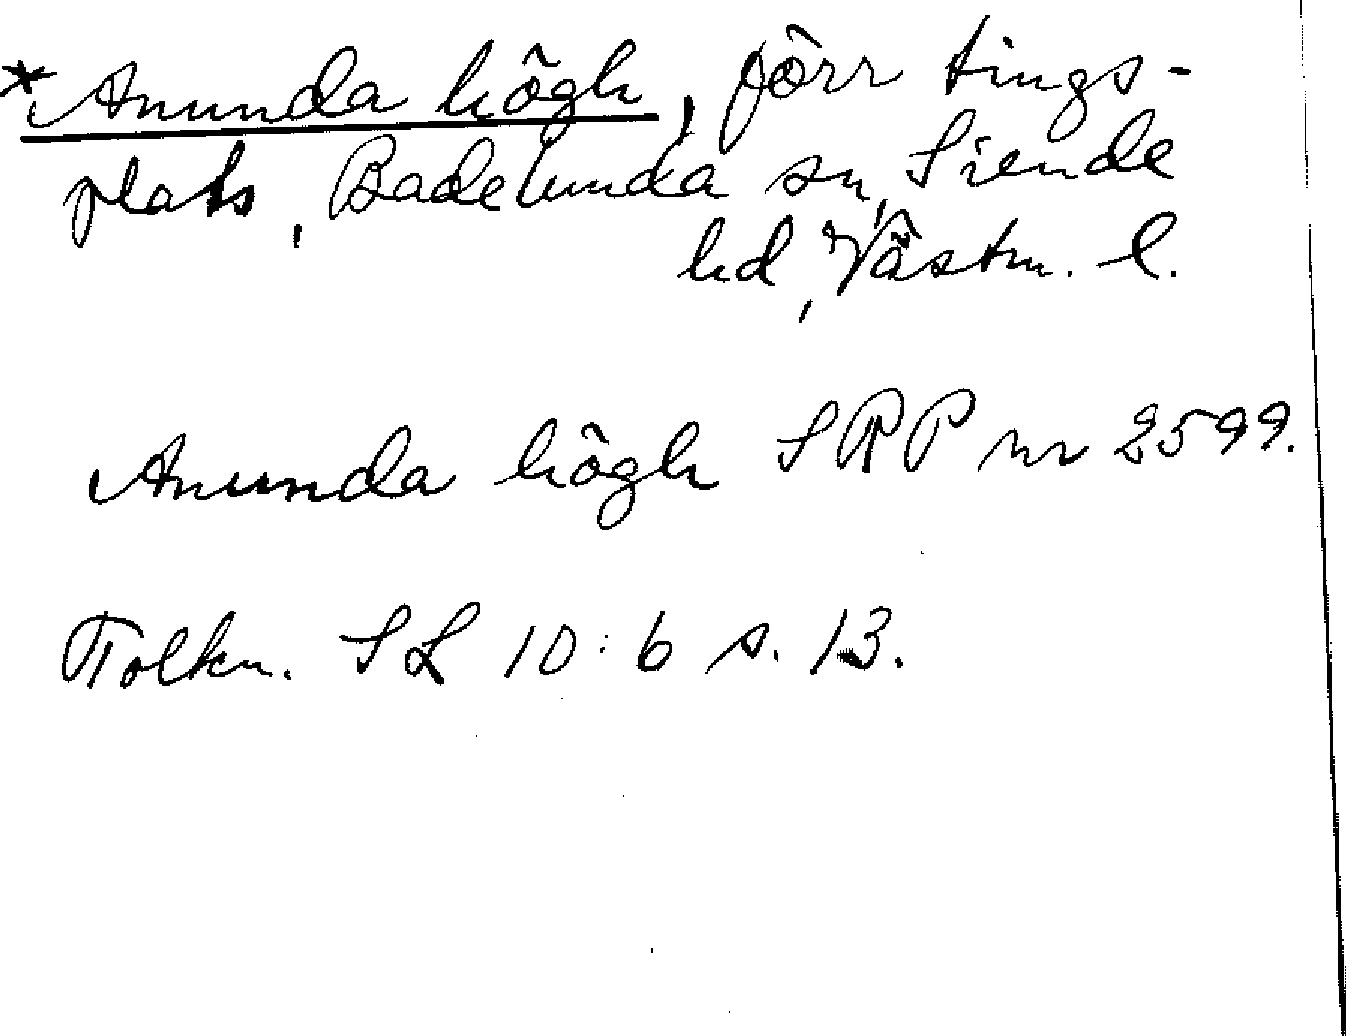 *Anunda högh, förr tings-
plats, Badelunda sn, Siende
hd, Västm. l.
Anunda högh SRP nr 2599.
Tolkn. SL 10:6 s. 13.